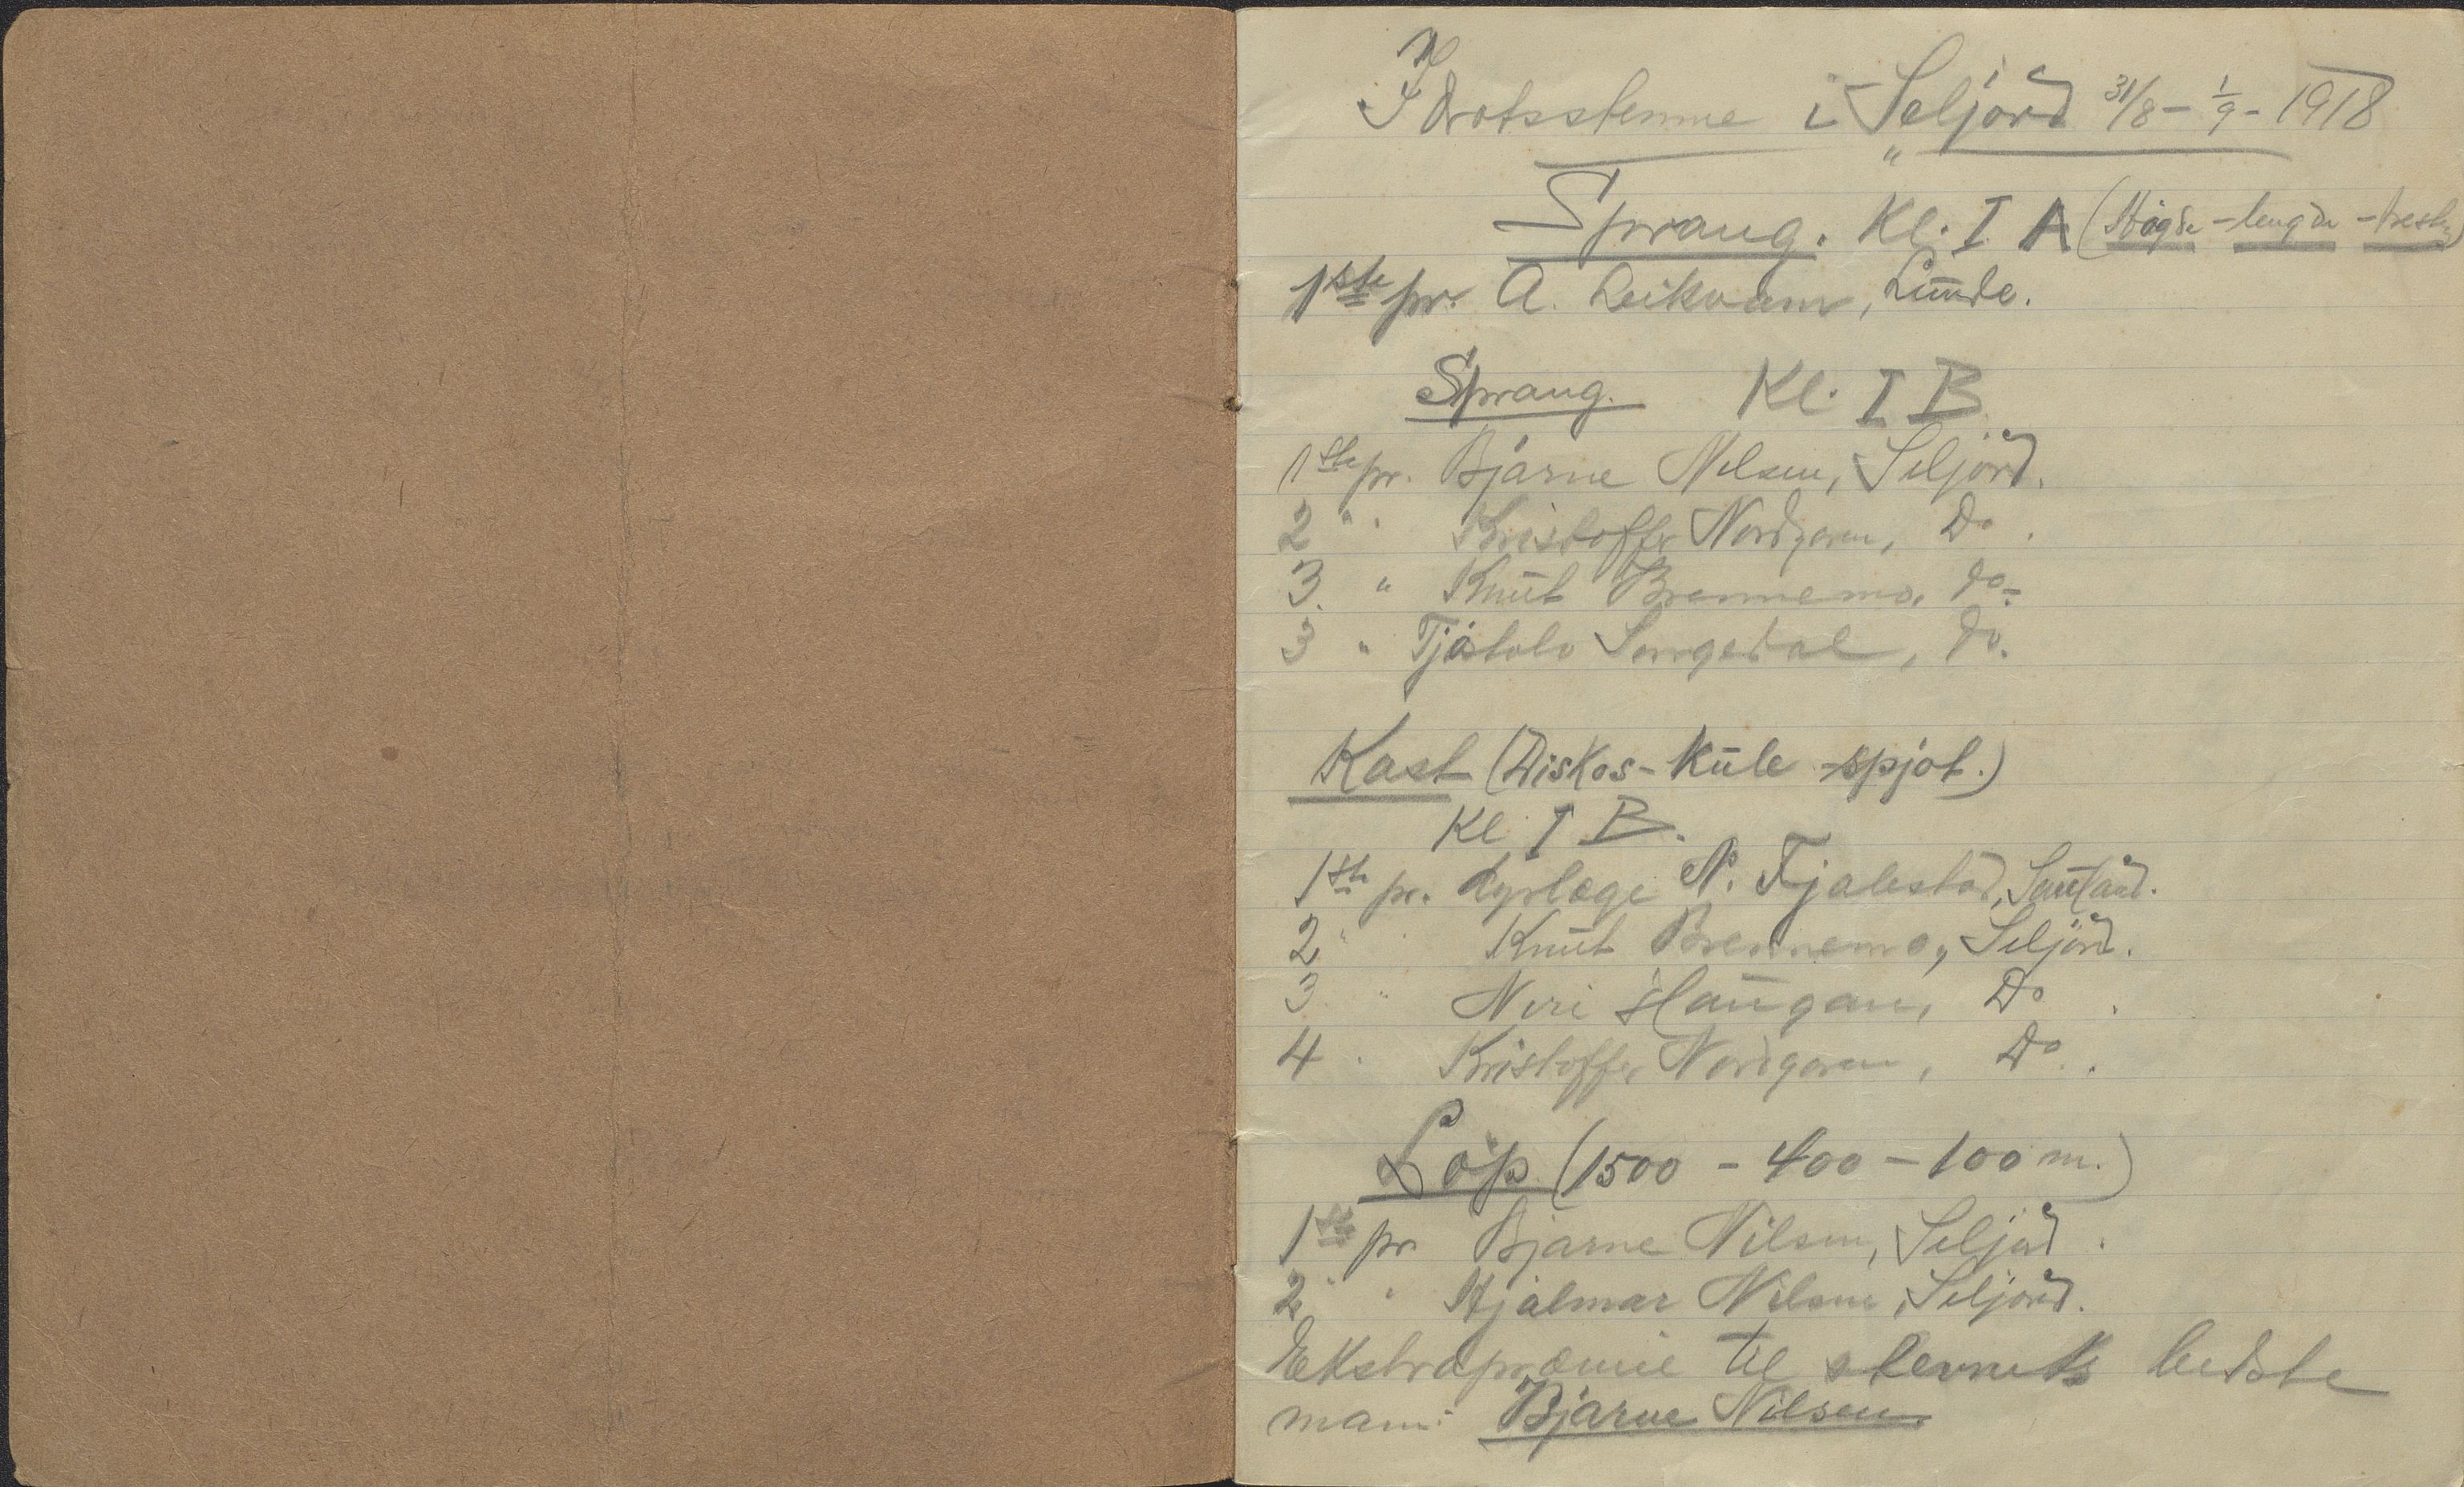 Idrotsstemne i Seljord 31/8 - 1/9 - 1918
Sprang. Kl. I A (Høgde - lengde - tresteg)
1ste pr. A. Leikvam, Lunde.
Sprang. Kl. I B
1ste pr. Bjarne Nilsen, Seljord.
2 " " Kristoffer Nordgaren, Do.
3. " Knut Brennemo, do.
3 " Tjøstolv Songedal, do.
Kast (Diskos - Kule - spjot.)
Kl I B.
1ste pr. Dyrlæge N. Fjalestad, Sauland.
2 " " Knut Brennemo, Seljord.
3 " Neri Haugan, Do.
4 " Kristoffer Nordgaren, Do.
Løp. (1500 - 400 - 100 m.)
1ste pr Bjarne Nilsen, Seljord.
2 " " Hjalmar Nilsen, Seljord.
Ekstrapræmie til stevnets beste
mann: Bjarne Nilsen.